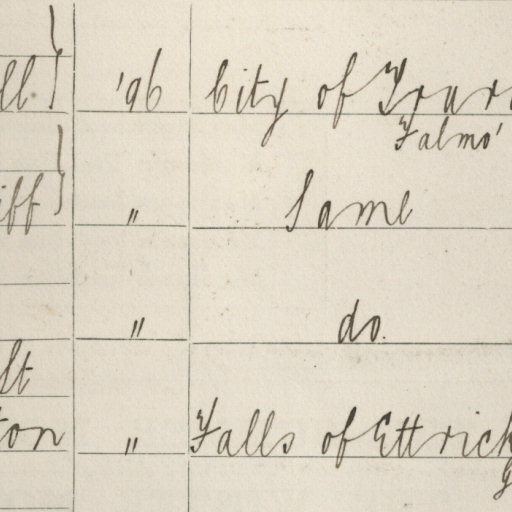 ll '96 City of Trur
Falmo'
iff " Same
" do.
lt
ton " Falls of Ettrick